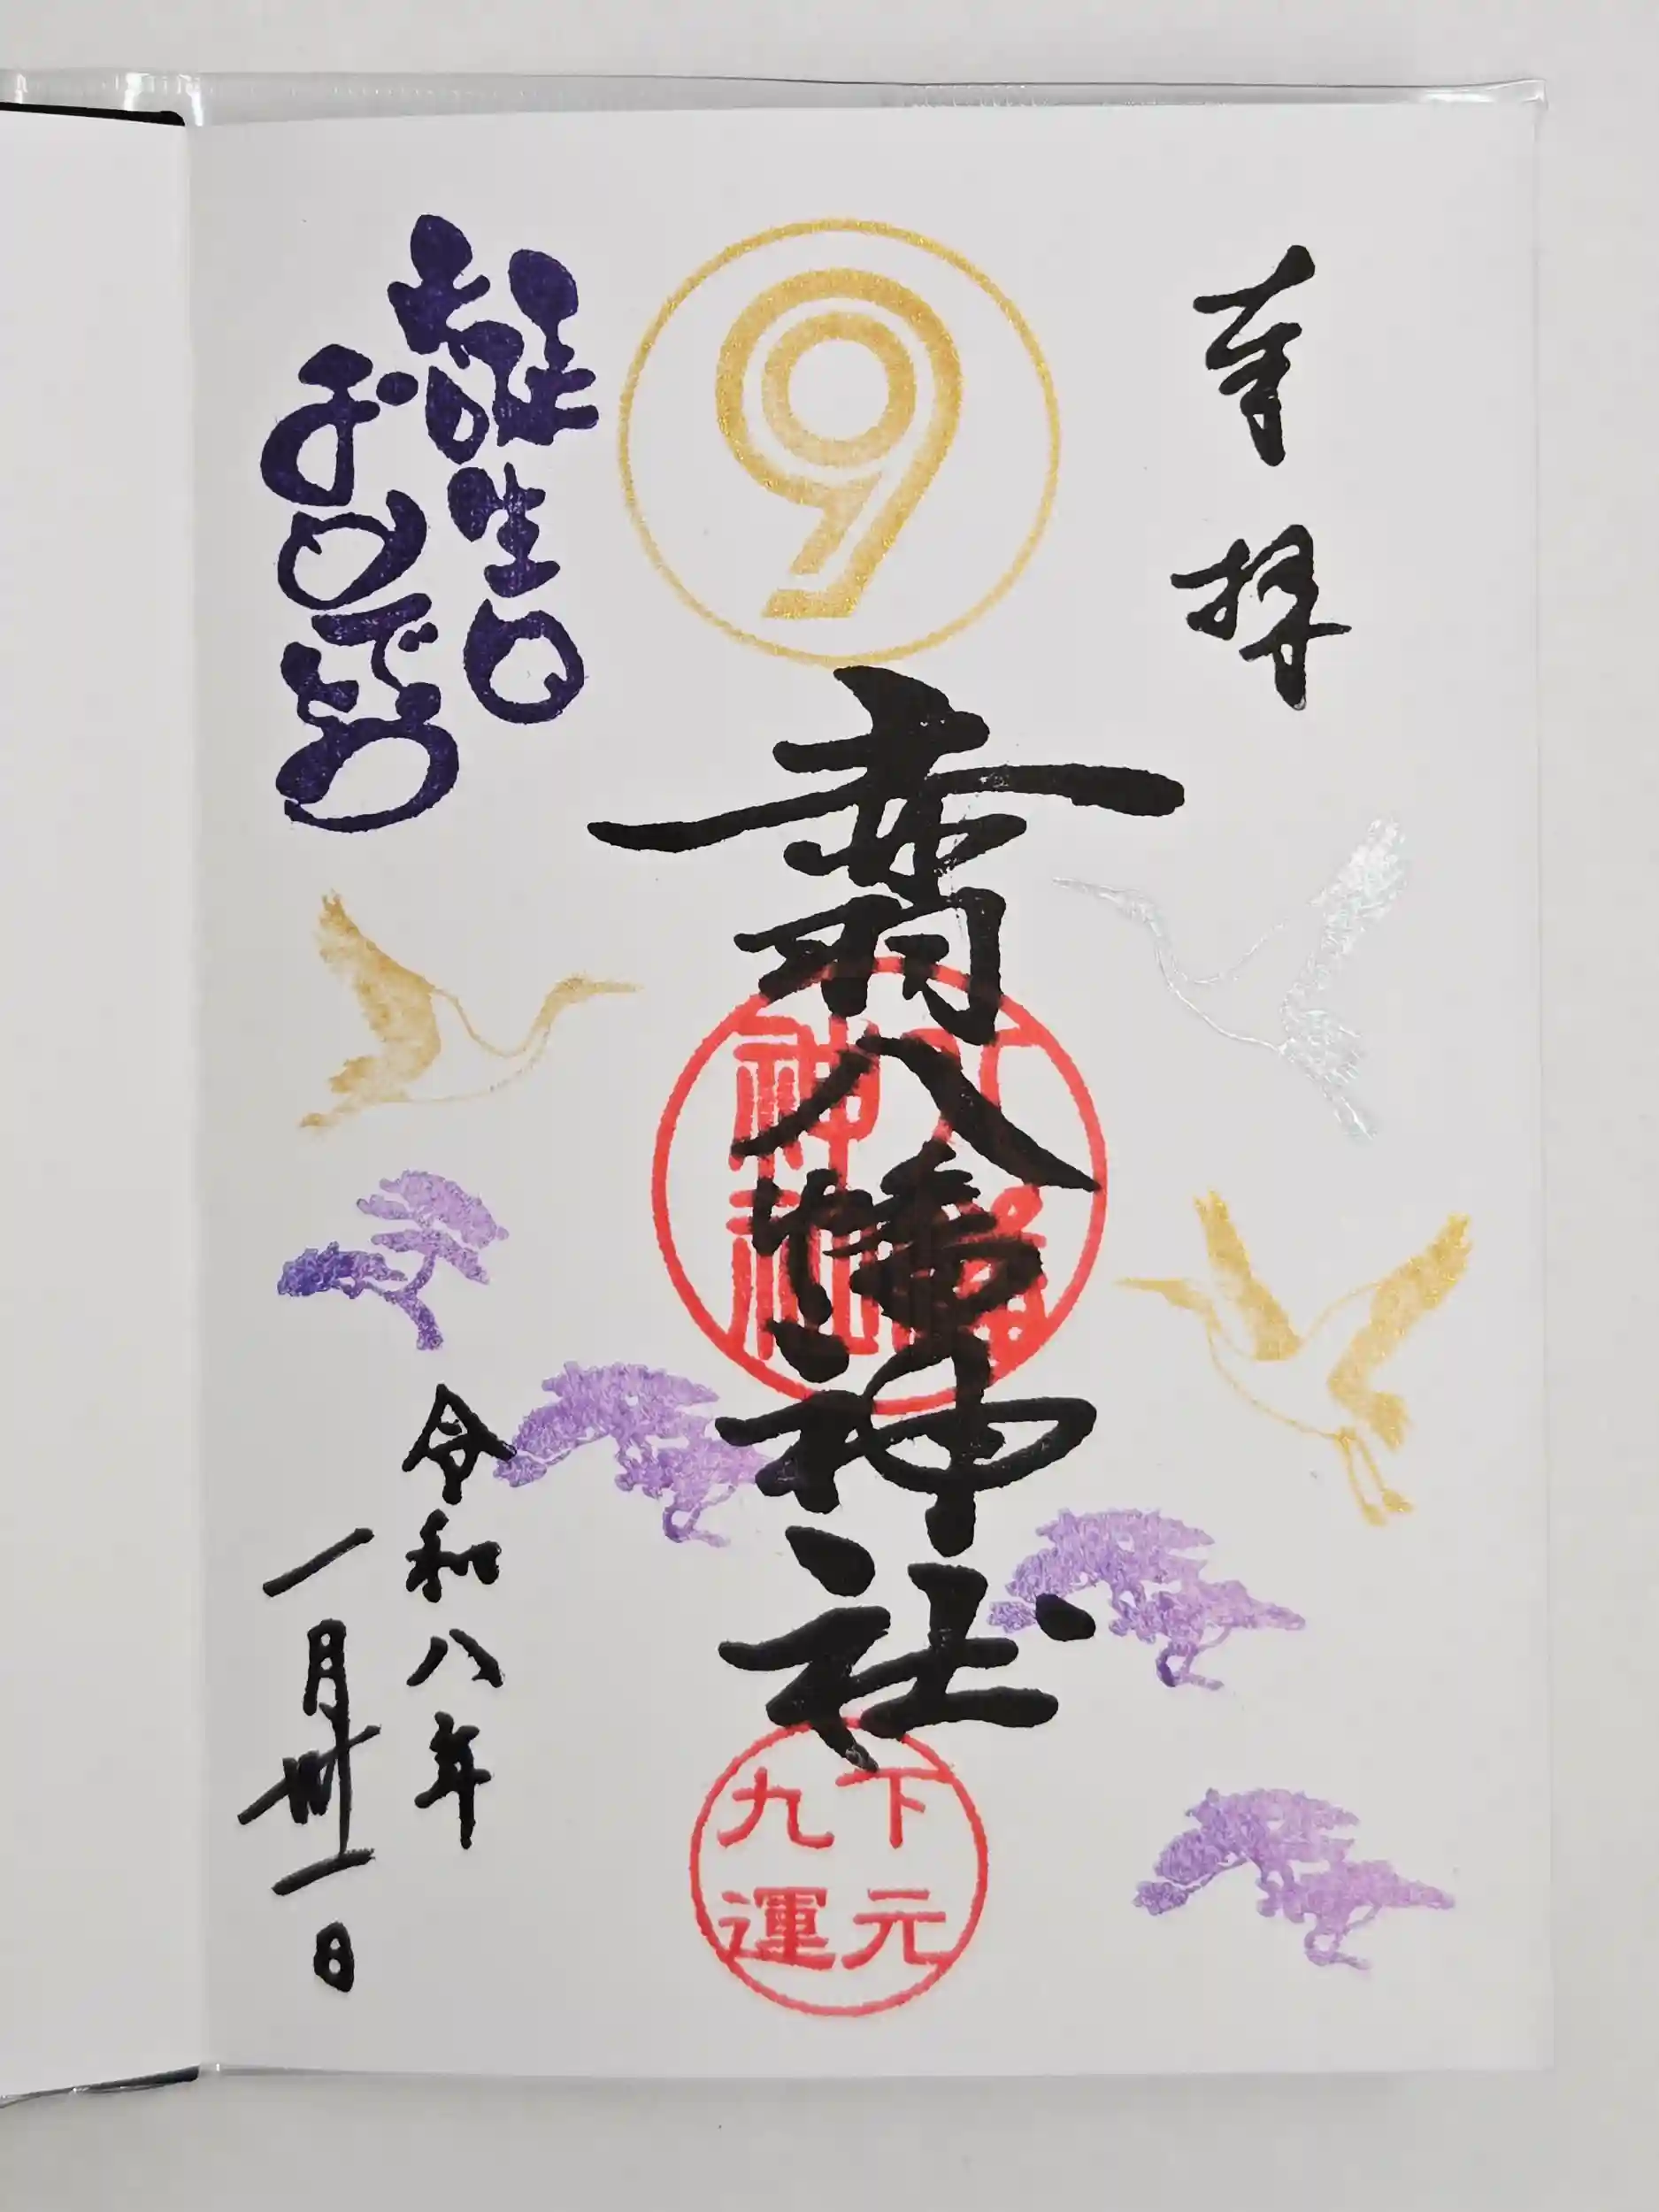 奉拝
9
赤羽八幡神社
八幡
神社
下元
九運
誕生日
おめでとう
令和八年
一月卅一日